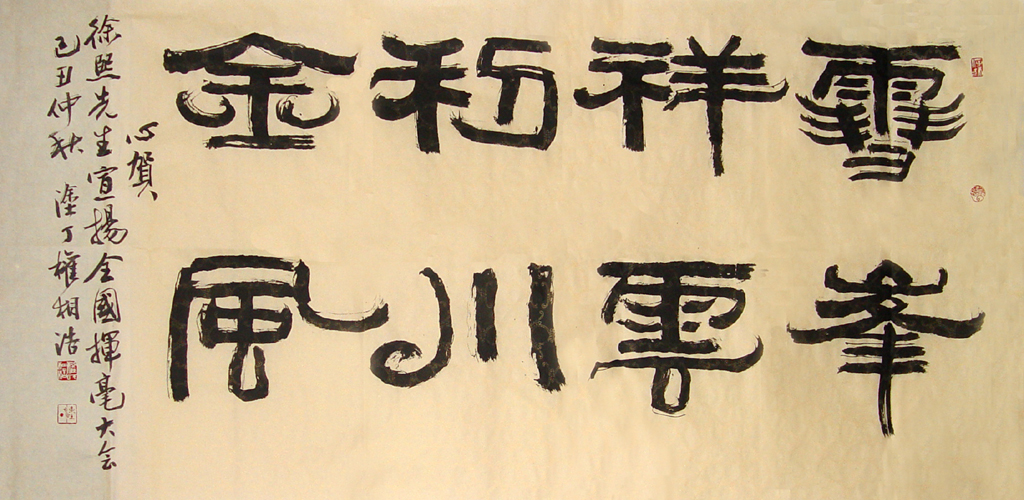 雪峯
祥雲
利川
金風
心賀
徐熙先生宣揚全國揮毫大会
己丑仲秋 塗丁權相浩